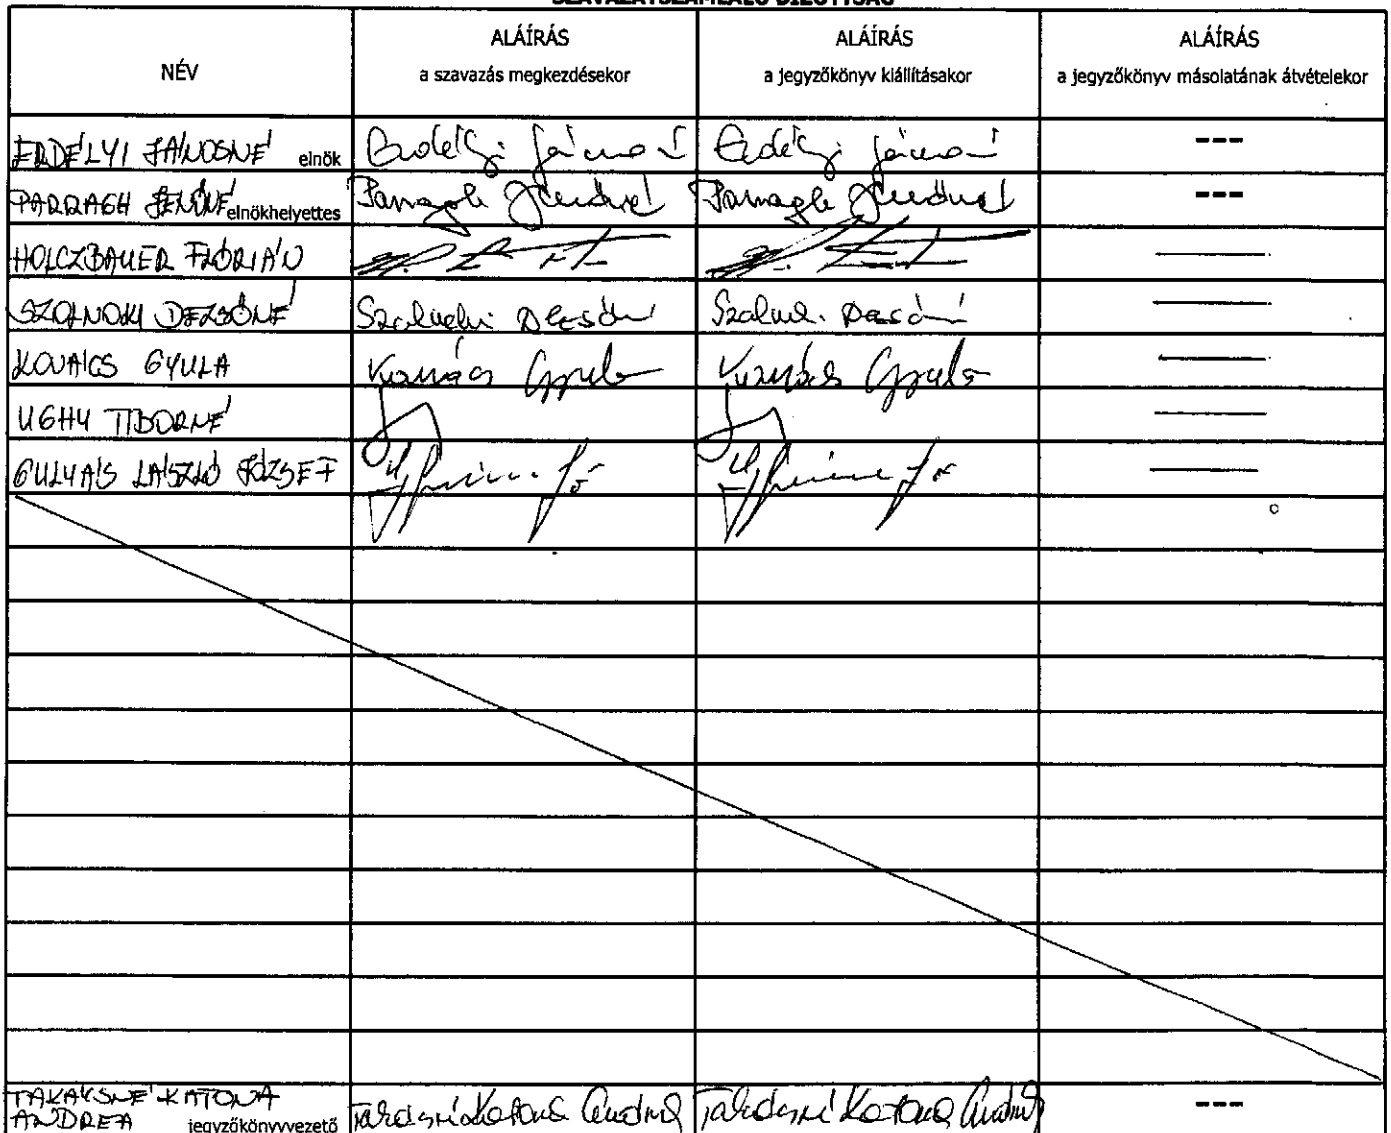 SZAVAZATSZÁMLÁLÓ BIZOTTSÁG
NÉV
ALÁÍRÁS
a szavazás megkezdésekor
ALÁÍRÁS
a jegyzőkönyv kiállításakor
ALÁÍRÁS
a jegyzőkönyv másolatának átvételekor
ERDÉLYI JÁNOSNÉ elnök Erdélyi Jánosné Erdélyi Jánosné ---
PARRAGH JENŐNÉ elnökhelyettes Parragh Jenőné Parragh Jenőné ---
HOLCZBAUER FLÓRIÁN
SZOLNOKI DEZSŐNÉ Szolnoki Dezsőné Szolnoki Dezsőné
KOVÁCS GYULA Kovács Gyula Kovács Gyula
UGHY TIBORNÉ
GULYÁS LÁSZLÓ JÓZSEF
TAKÁCSNÉ KATONA
ANDREA jegyzőkönyvvezető Takácsné Katona Andrea Takácsné Katona Andrea ---